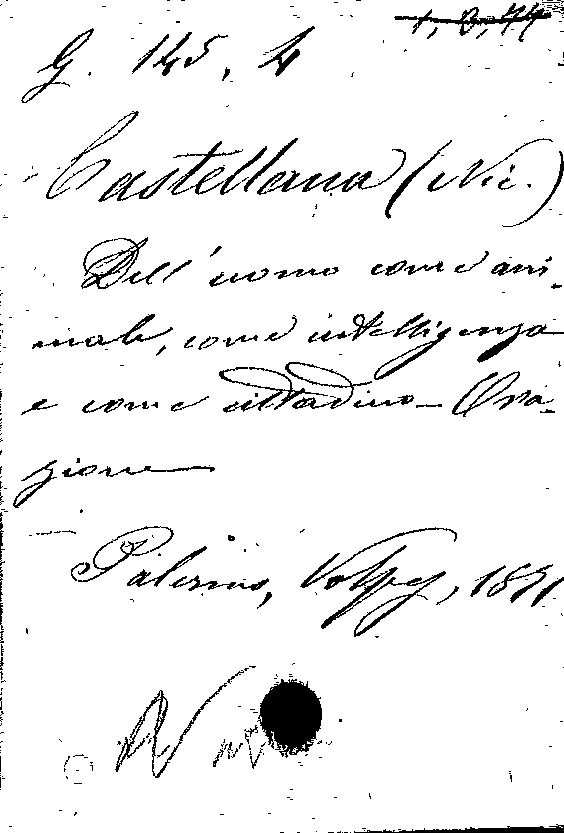 1, 8, 74
G. 145, 4
Castellana (Nic.)
Dell'uomo come ani-
male, come intelligenza
e come cittadino - Ora-
zione
Palermo, Volpes, 1871